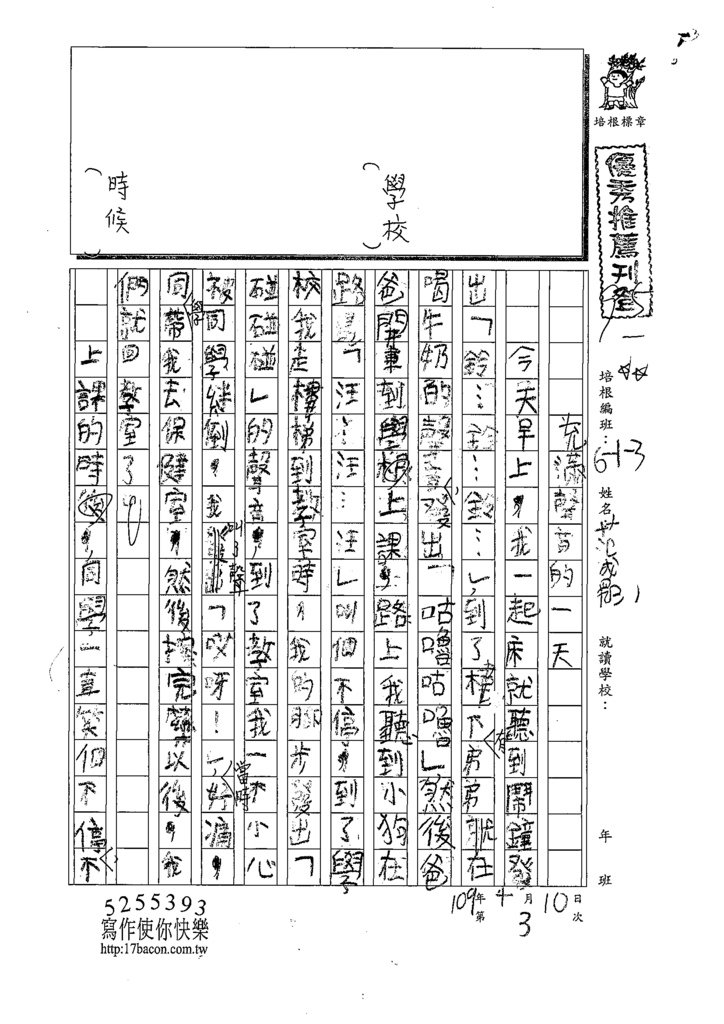 培根標章
優秀推薦刊登
培根編班：6-1-3
姓名
就讀學校：
年 班
109年4月10日
第3次
學校
時候
充滿聲音的一天
今天早上，我一起床就聽到鬧鐘發
出「鈴…鈴…鈴…」到了樓下有弟弟就在
喝牛奶的聲音發出「咕嚕咕嚕」然後爸
爸開車到學校上課，路上我聽到小狗在
路邊「汪…汪…汪」叫個不停，到了學
校我走樓梯到教室時，我的腳步發出「
碰碰碰」的聲音，到了教室我一不小心
被同學絆倒，我叫聲「哎呀！」當時好痛，
同學帶我去保健室，然後擦完藥以後，我
們就回教室了。
上課的時候，同學一直笑個不停不
5255393
寫作使你快樂
http:17bacon.com.tw